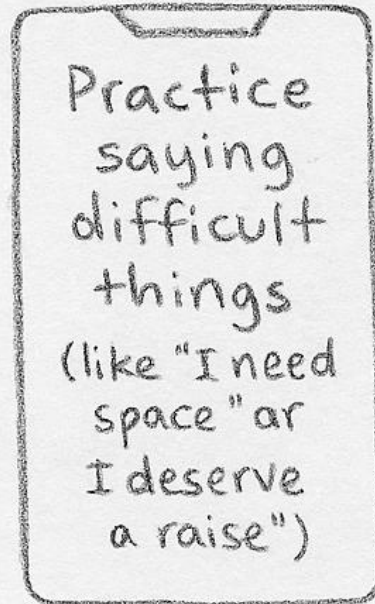 Practice
saying
difficult
things
(like "I need
space" ar
I deserve
a raise")